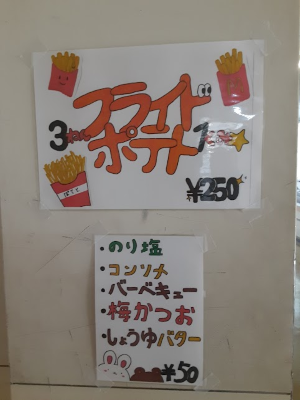 フライド
3ねん ポテト 1
ポテト
¥250
・のり塩
・コンソメ
・バーベキュー
・梅かつお
・しょうゆバター
¥50